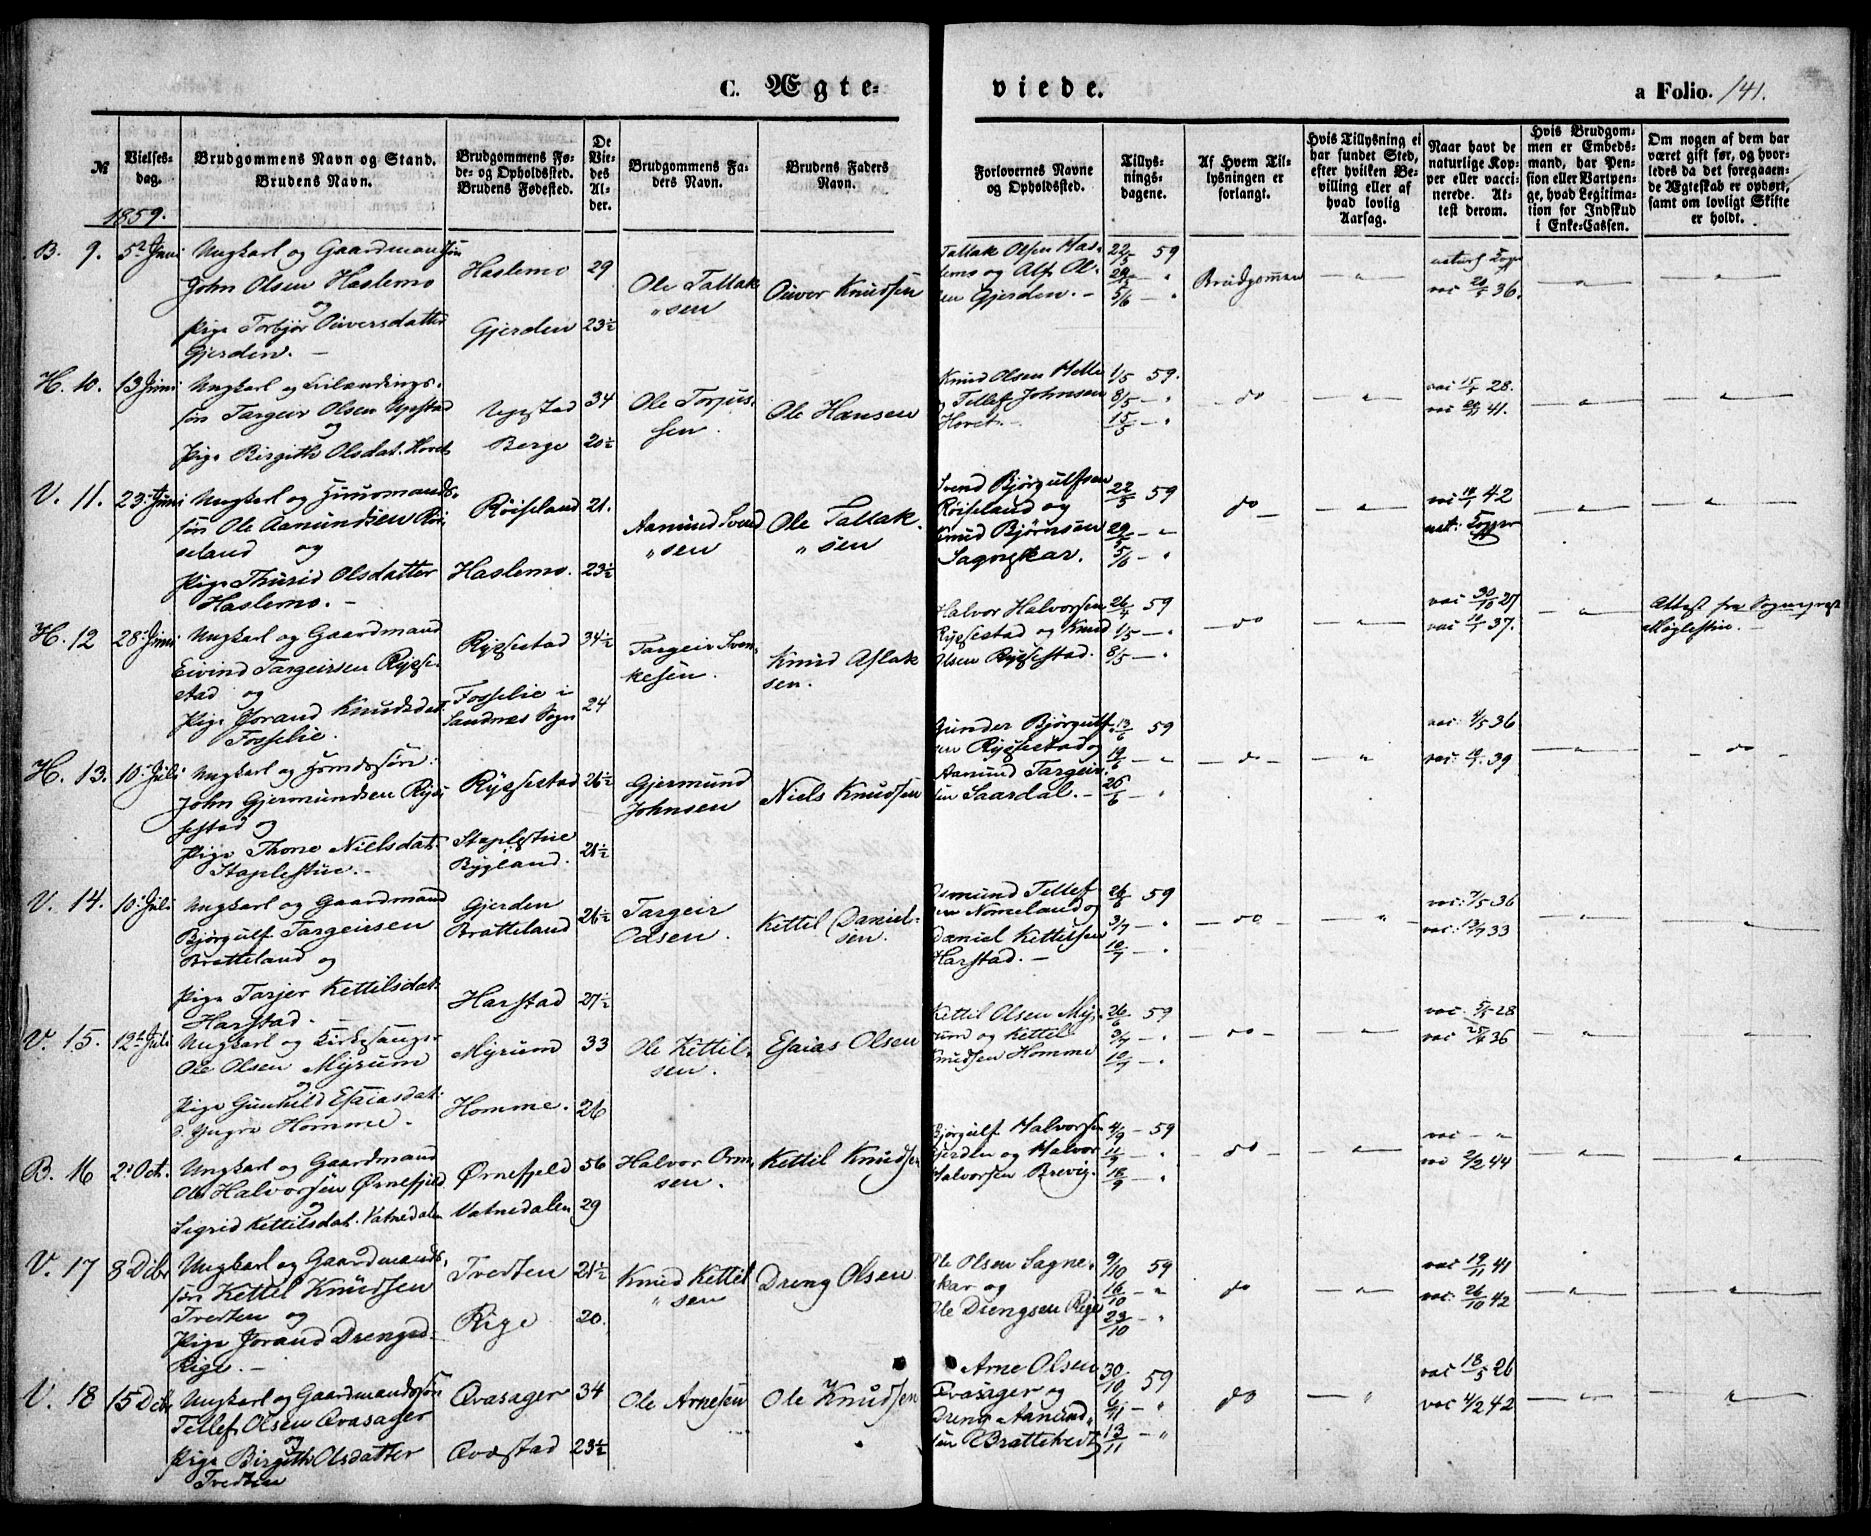 C. Ægte-
viede.
a Folio. 141.
№
Vielses-
dag.
Brudgommens Navn og Stand.
Brudens Navn.
Brudgommens Fø-
de- og Opholdssted.
Brudens Fødested.
De
Vie-
des
Al-
der.
Brudgommens Fa-
ders Navn.
Brudens Faders
Navn.
Forlovernes Navne
og Opholdssted.
Tillys-
nings-
dagene.
Af Hvem Til-
lysningen er
forlangt.
Hvis Tillysning ei
har fundet Sted,
efter hvilken Be-
villing eller af
hvad lovlig
Aarsag.
Naar havt de
naturlige Kop-
per eller vacci-
nerede. At-
test derom.
Hvis Brudgom-
men er Embeds-
mand, har Pen-
sion eller Vartpen-
ge, hvad Legitima-
tion for Indskud
i Enke-Cassen.
Om nogen af dem har
været gift før, og hvor-
ledes da det foregaaen-
de Ægteskab er ophørt,
samt om lovligt Skifte
er holdt.
1859.
B. 9. 5te Juni Ungkarl og Gaardmandssøn
John Olsen Haslemo
og
Pige Torbjør Ouversdatter
Gjerden. —
Haslemo 29
Gjerden 23½
Ole Tallak
"sen
Ouver Knudsen
Tallak Olsen Has-
lemo og Alf Ol-
sen Gjerden. —
22/5 59
29/5 — "
5/6 — "
Brudgommen
vac 36.
H. 10. 13 Juni Ungkarl og
søn Targeir Olsen Upstad
og
Pige Birgith Olsdat. Hovet
Upstad 34
Berge 20½
Ole Torjus-
sen.
Ole Hansen
Knud Olsen Helle
og Tellef Johnsen
Hovet. —
1/5 59.
8/5 — "
15/5 — "
do
vac 28.
vac 41.
V. 11. 23 Juni Ungkarl og Huusmands-
søn Ole Aamundsen Røi-
seland og
Pige Thurid Olsdatter
Haslemo. —
Røiseland 21.
Haslemo. 23½
Aamund Svend
"sen
Ole Tallak
"sen
Svend Bjørgulfsen
Røiseland og
Knud Bjørnsen
Sagneskar.
22/5 59
29/5 — "
5/6 — "
do
vac 42
H. 12 28 Juni Ungkarl og Gaardmand
Eivind Targeirsen Rygse-
stad og
Pige Jorand Knudsdat.
Fosselie.
Rygsestad 34½
Fosselie i
Sandnes Sogn 24
Targeir Sven-
kesen.
Knud Aslak
sen.
Halvor Halvorsen
Rygsestad og Knud
Olsen Rygsestad.
26/4 59
1/5 — "
8/5 — "
do
vac 30/10 27
vac 37.
Attest fra Sognepræst
H. 13. 10 Juli Ungkarl og
John Gjermundsen Ryg-
sestad og
Pige Thone Nielsdat.
Staplestue. —
Rygsestad 26½
Staplestue
Bygland. 21½
Gjermund
Johnsen
Niels Knudsen
Gunder Bjørgulf-
sen Rygsestad og
Aamund Targeir-
sen Saardal. —
59
19/6 — "
26/6 — "
do
vac. 36
vac. 39
do
V. 14. 10 Juli Ungkarl og Gaardmand
Bjørgulf Targeirsen
Bratteland og
Pige Tarjer Kettilsdat.
Harstad. —
Gjerden
Bratteland 26½
Harstad 27½
Targeir
Olsen.
Kettil Daniel-
sen.
Tellef
sen Nomeland og
Daniel Kettilsen
Harstad. —
26/6 59
3/7 — "
10/7 — "
do
vac. 36
vac. 33
V. 15. 12te Juli Ungkarl og Kirkesanger
Ole Olsen Myrum
og
Pige Gunhild Esaiasdat.
d. yngre Homme.
Myrum 33
Homme. 26
Ole Kettil-
sen.
Esaias Olsen
Kettil Olsen My-
rum og Kettil
Knudsen Homme
26/6 59
3/7 — "
10/7 — "
do
vac 28
vac 36
B. 16 2 Oct. Ungkarl og Gaardmand
Ole Halvorsen Ørnefjeld
og
Sigrid Kettilsdat. Vatnedalen
Ørnefjeld 56
Vatnedalen 29
Halvor Orm-
sen.
Kettil Knudsen
Bjørgulf Halvorsen
Gjerden og Halvor
Halvorsen Brevig.
4/9 — 59
11/9 — "
18/9 — "
do
vac — "
vac 2/2 44
V. 17 8 Dcbr Ungkarl og Gaardmands-
søn Kettil Knudsen
Tveden og
Pige Jorand Drengsd.
Rige. —
Tveden 21½
Rige 20.
Knud Kettil
"sen
Dreng Olsen
Ole Olsen Sagne-
skar og
Ole Drengsen Rige
9/10 59
16/10 — "
23/10 — "
do
vac 19/11 41
vac. 26/10 42
V. 18 15 Dcbr Ungkarl og Gaardmandssøn
Tellef Olsen Qvasager
og
Pige Birgith Olsdatter
Tveden
Qvasager 34
Qvæstad 23½
Ole Arnesen
Ole Knudsen
Arne Olsen
Qvasager og
Dreng Aamund
sen Brattekvedt
30/10 59
6/11 — "
13/11 — "
do
vac 18/5 26
vac 4/2 42